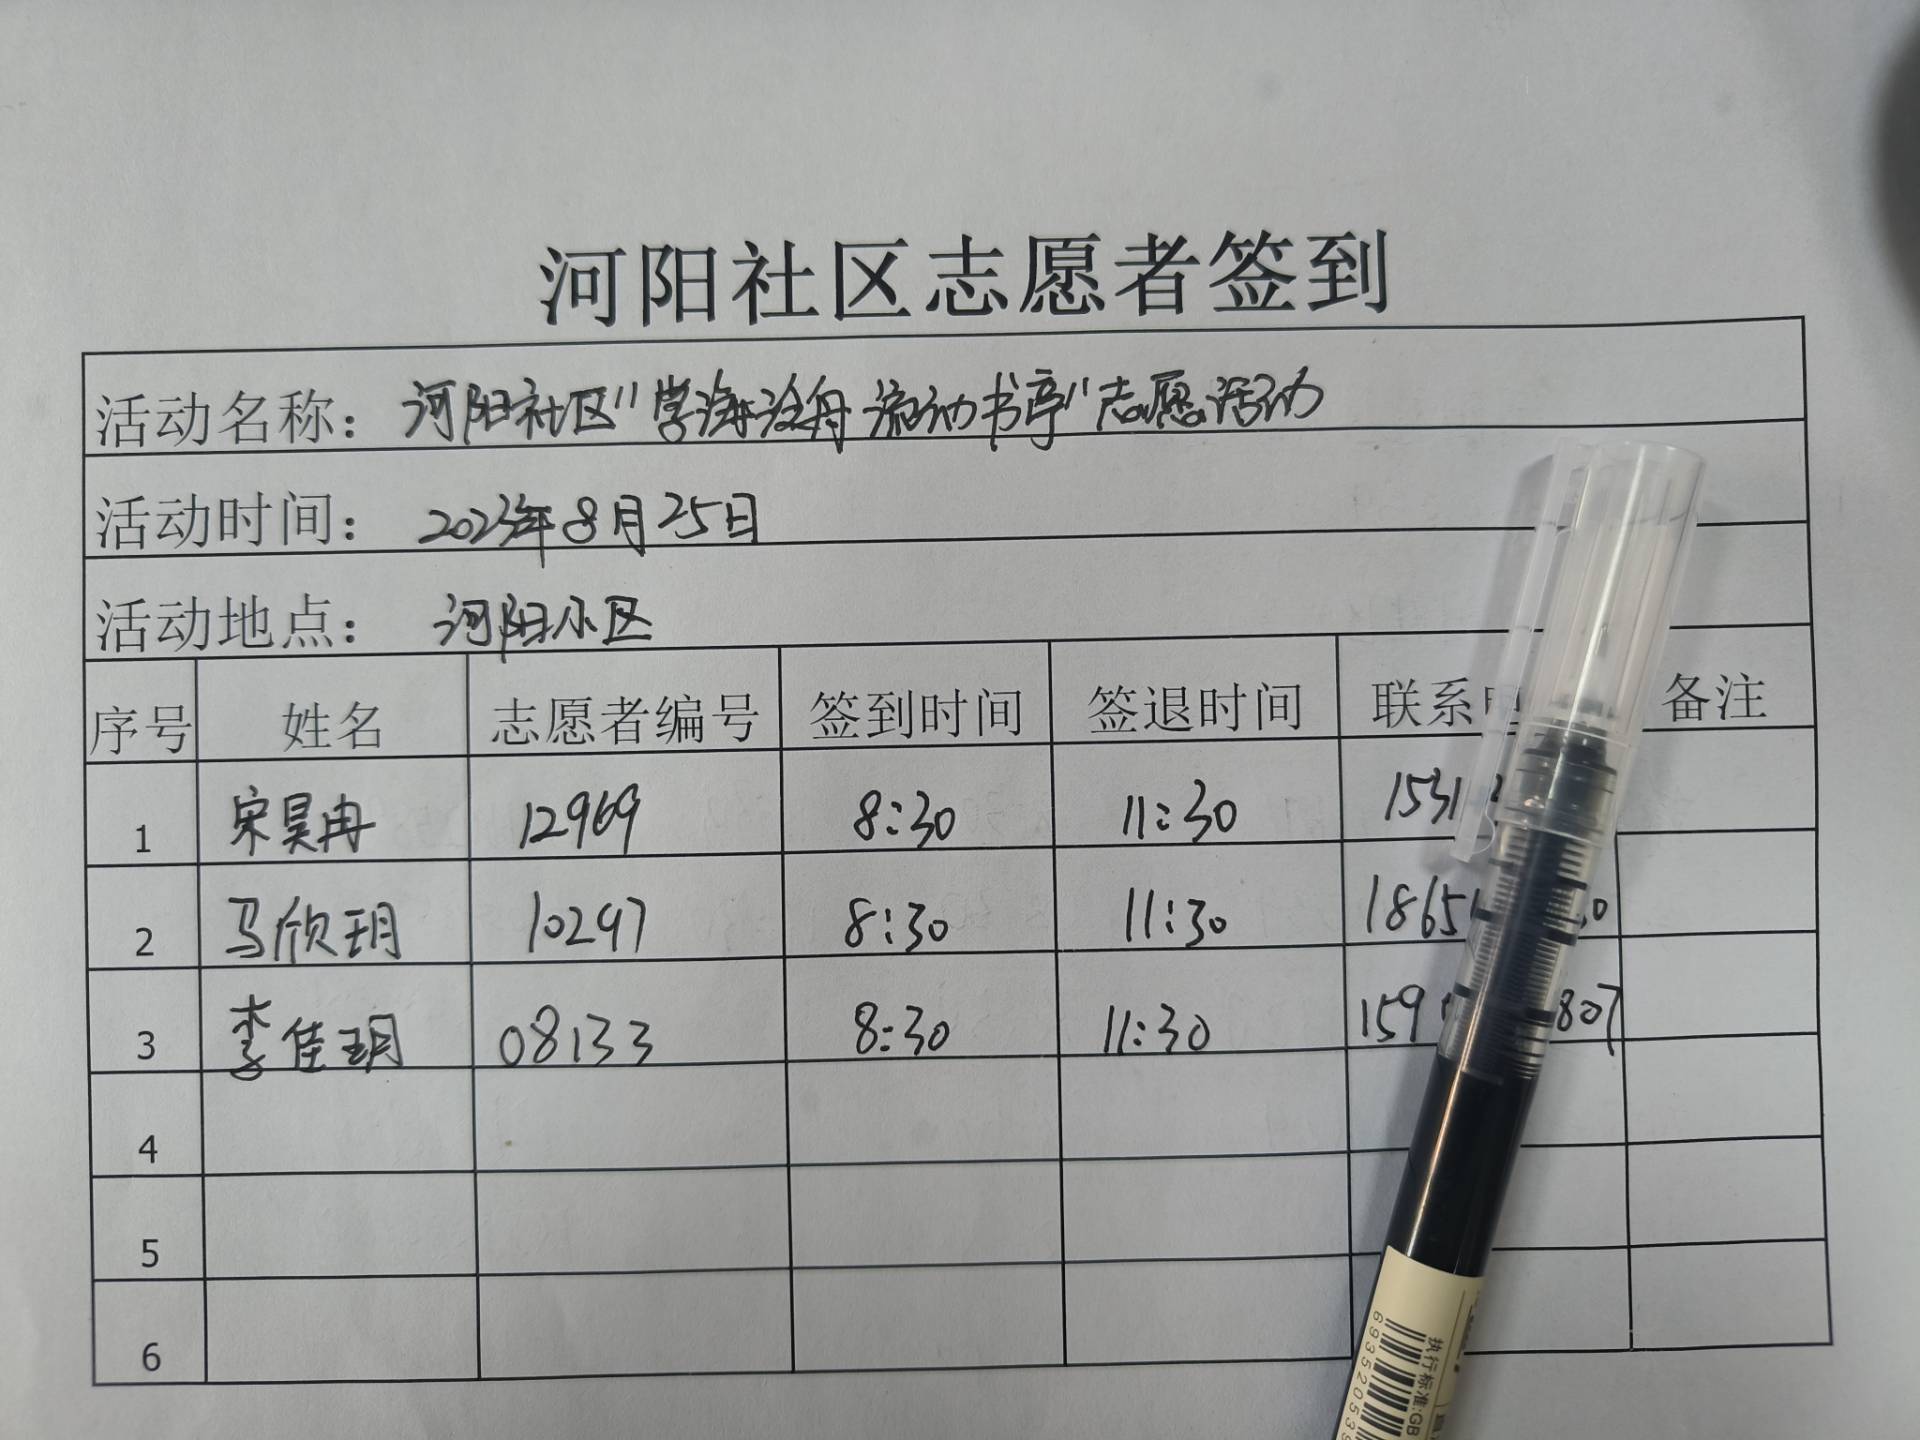 河阳社区志愿者签到
活动名称： 河阳社区"学海泛舟 流动书亭"志愿活动
活动时间： 2023年8月25日
活动地点： 河阳小区
序号 姓名 志愿者编号 签到时间 签退时间 联系 备注
1 宋昊冉 12969 8:30 11:30 1531
2 马欣玥 10297 8:30 11:30 1865 0
3 李佳玥 08133 8:30 11:30 159 807
4
5
6
执行标准:GB
69352053